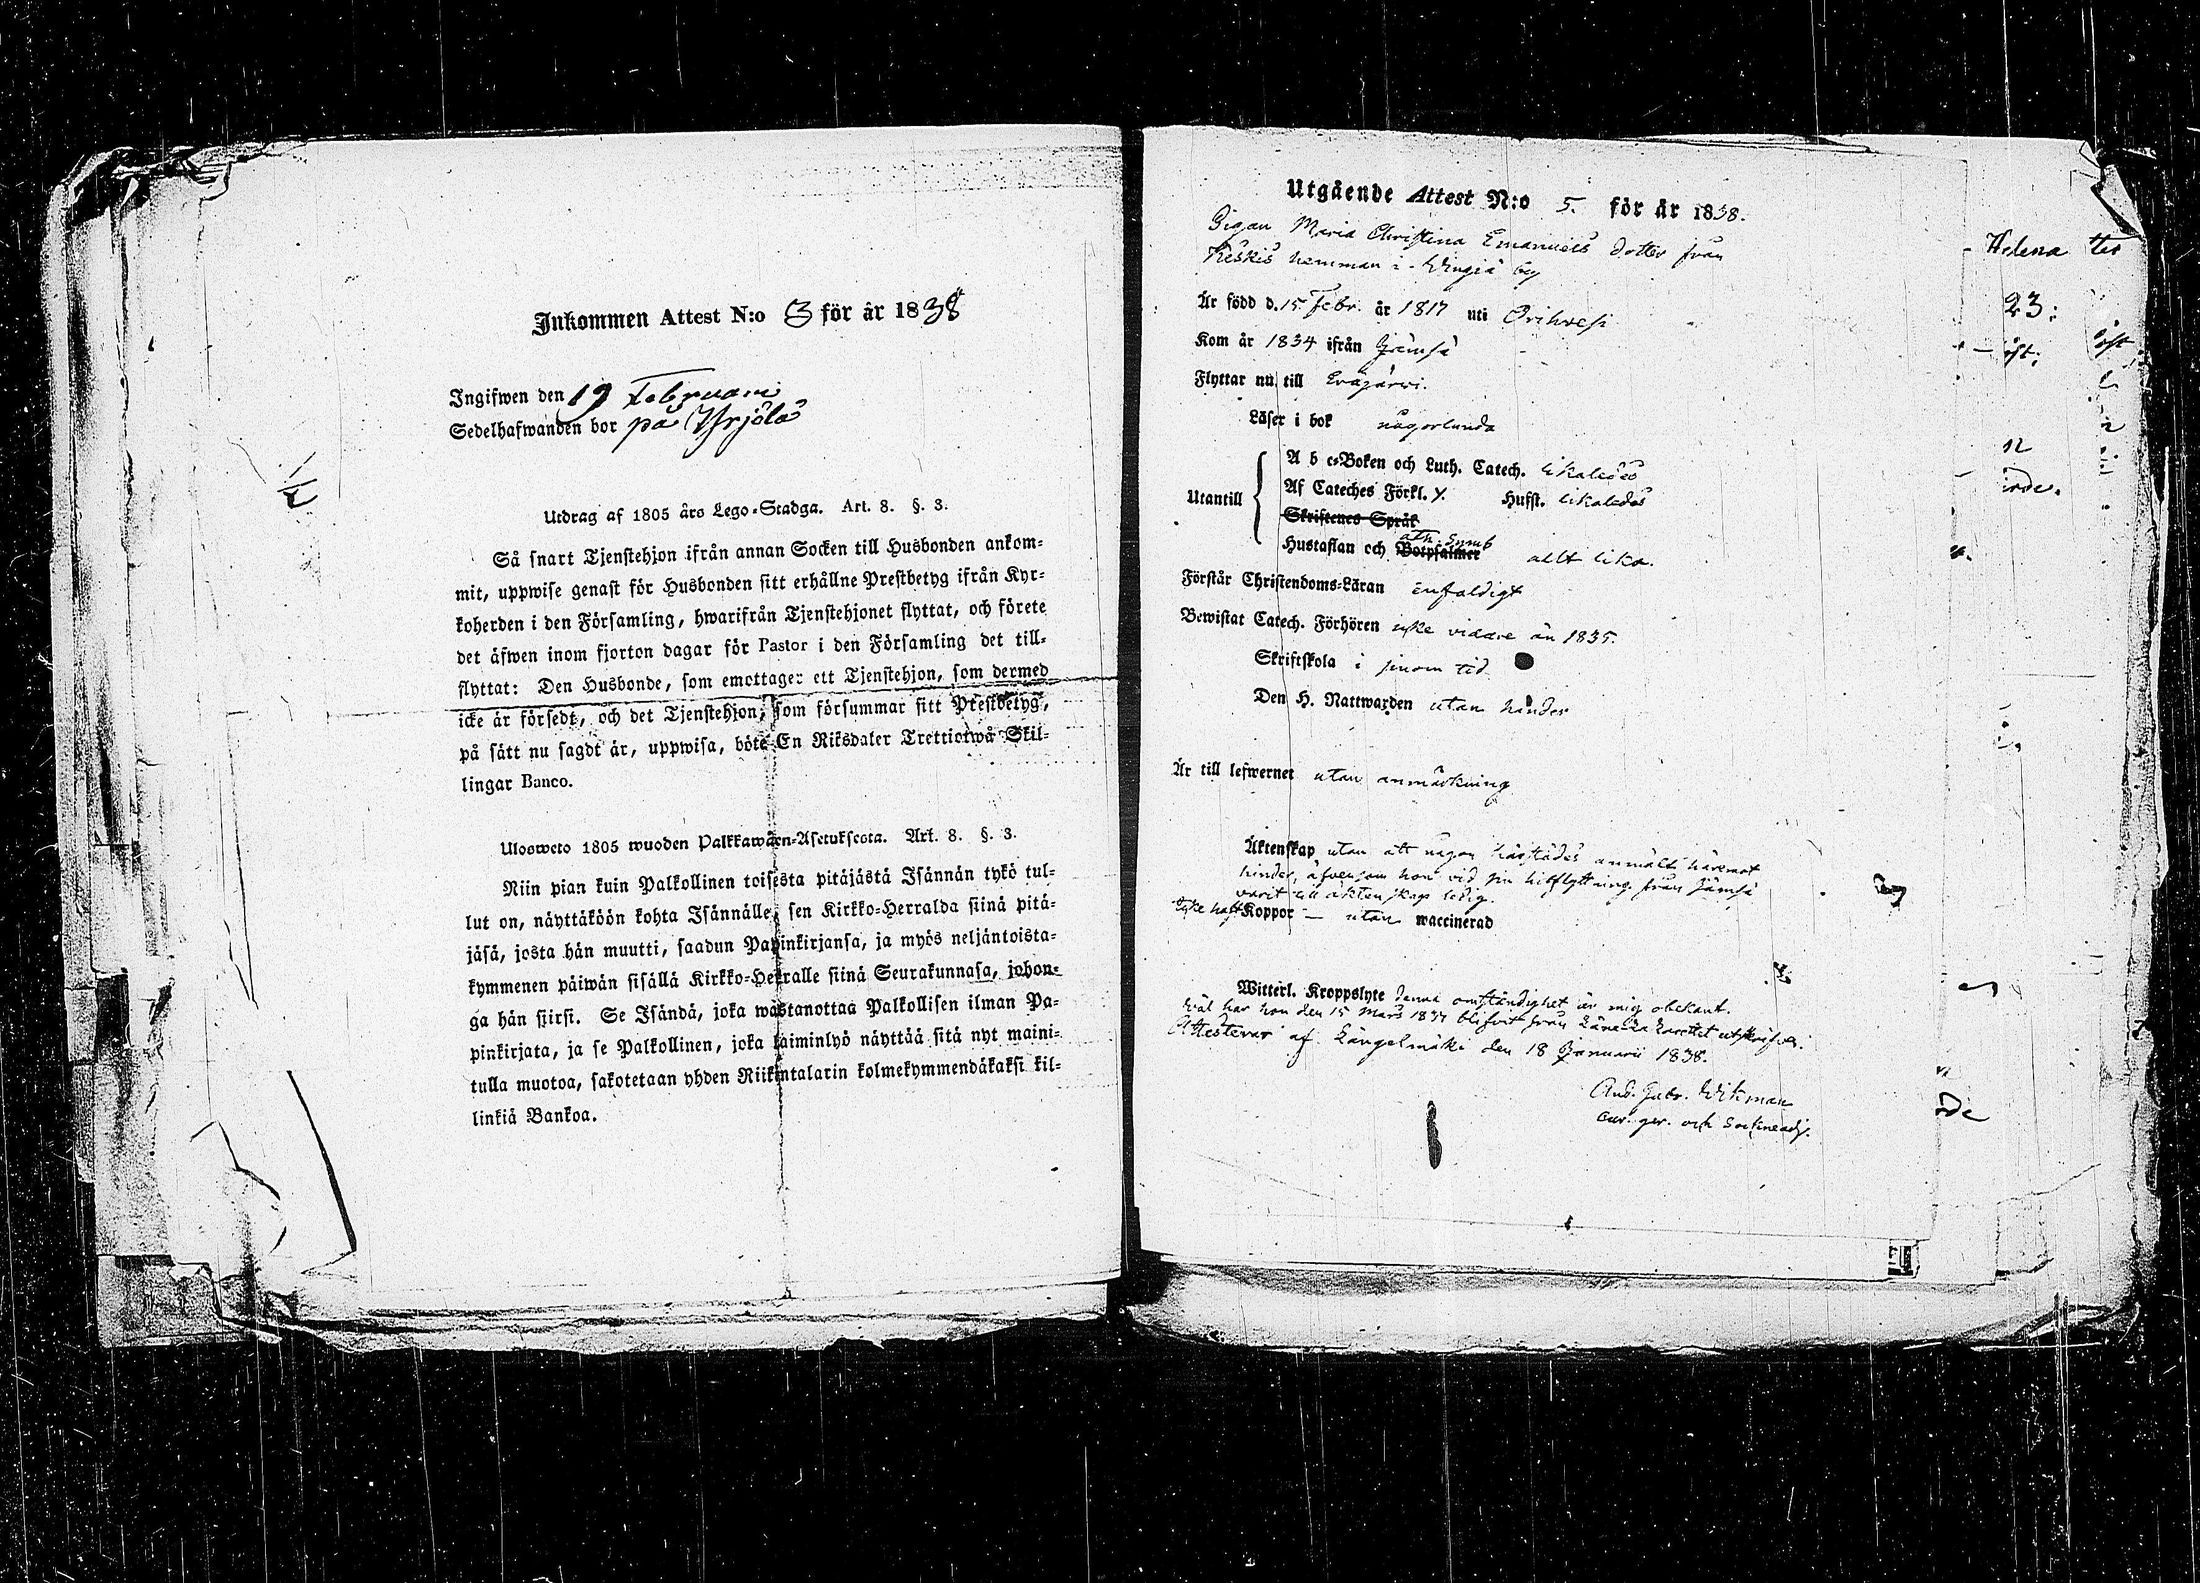 Inkommen Attest N:o 3 för år 1838
Ingifwen den 19 Februari
Sedelhafwanden bor på Yrjölä
Utdrag af 1805 års Lego-Stadga. Art. 8. §. 3.
Så snart Tjenstehjon ifrån annan Socken till Husbonden ankom-
mit, uppwise genast för Husbonden sitt erhållne Prestbetyg ifrån Kyr-
koherden i den Församling, hwarifrån Tjenstehjonet flyttat, och förete
det äfwen inom fjorton dagar för Pastor i den Församling det till-
flyttat: Den Husbonde, som emottager ett Tjenstehjon, som dermed
icke är försedt, och det Tjenstehjon, som försummar sitt Prestbetyg,
på sätt nu sagdt är, uppwisa, böte En Riksdaler Trettiotwå Skil-
lingar Banco.
Ulosweto 1805 wuoden Palkkawäen-Asetuksesta. Art. 8. §. 3.
Niin pian kuin Palkollinen toisesta pitäjästä Isännän tykö tul-
lut on, näyttäköön kohta Isännälle, sen Kirkko-Herralda siinä pitä-
jäsä, josta hän muutti, saadun Papinkirjansa, ja myös neljäntoista-
kymmenen päiwän sisällä Kirkko-Herralle siinä Seurakunnasa, johon-
ga hän siirsi. Se Isändä, joka wastanottaa Palkollisen ilman Pa-
pinkirjata, ja se Palkollinen, joka laiminlyö näyttää sitä nyt maini-
tulla muotoa, sakotetaan yhden Riikintalarin kolmekymmendäkaksi kil-
linkiä Bankoa.
Utgående Attest N:o 5. för år 1838.
Pigan Maria Christina Emanuels dotter från
Keskis hemman i Wingiä by
Är född d. 15 Febr. år 1817 uti Orihvesi
Kom år 1834 ifrån Jämsä
Flyttar nu till Eräjärvi.
Läser i bok någorlunda
A b c-Boken och Luth. Catech. likaledes
Utantill Af Cateches Förkl. Y. Husst. likaledes
Skriftenes Språk
ath. Symb
Hustaflan och Botpsalmer allt lika.
Förstår Christendoms-Läran enfaldigt
Bewistat Catech. Förhören icke vidare än 1835.
Skriftskola i sinom tid
Den H. Nattwarden utan hinder
Är till lefwernet utan anmärkning
Äktenskap utan att någon härstädes anmält häremot
hinder, äfvensom hon vid sin hitflyttning från Jämsä
varit till äktenskap ledig.
Icke haft Koppor — utan waccinerad
Witterl. Kroppslyte denna omständighet är mig obekant.
Väl har hon den 15 Mars 1837 blifvit från Läns Lazarettet utskrifven.
Attesterar af Längelmäki den 18 Januarii 1838.
And. Gabr. Wikman
cur. ger. och Sockneadj.
Helena
23: